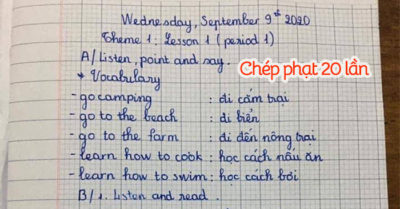 Wednesday, September 9th 2020
Theme 1: Lesson 1 (period 1)
A/ Listen, point and say.
Chép phạt 20 lần
* Vocabulary
- go camping : đi cắm trại
- go to the beach : đi biển
- go to the farm : đi đến nông trại
- learn how to cook : học cách nấu ăn
- learn how to swim : học cách bơi
B/ 1. Listen and read.